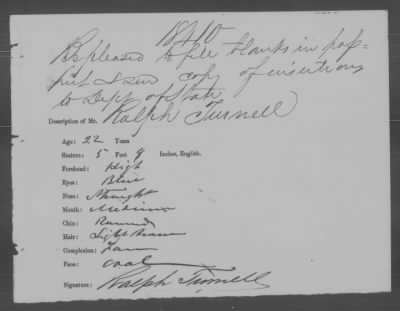 18410
Be pleased to file blanks in pass=
port & send copy of insertions
to Dept of State
Description of Mr. Ralph Turnell
Age: 22 Years
Stature: 5 Feet 9 Inches, English.
Forehead: High
Eyes: Blue
Nose: Straight
Mouth: Medium
Chin: Round
Hair: Light Brown
Complexion: Fair
Face: Oval
Signature: Ralph Turnell